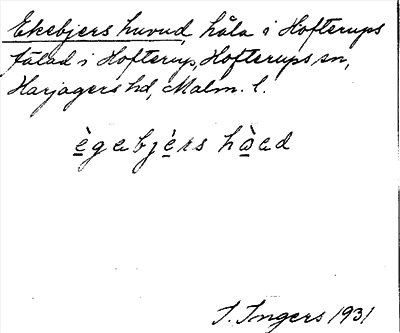 Ekebjers huvud, håla i Hofterups
fälad i Hofterup, Hofterups sn,
Harjagers hd, Malm. l.
ègabjérs hàad
I. Ingers 1931